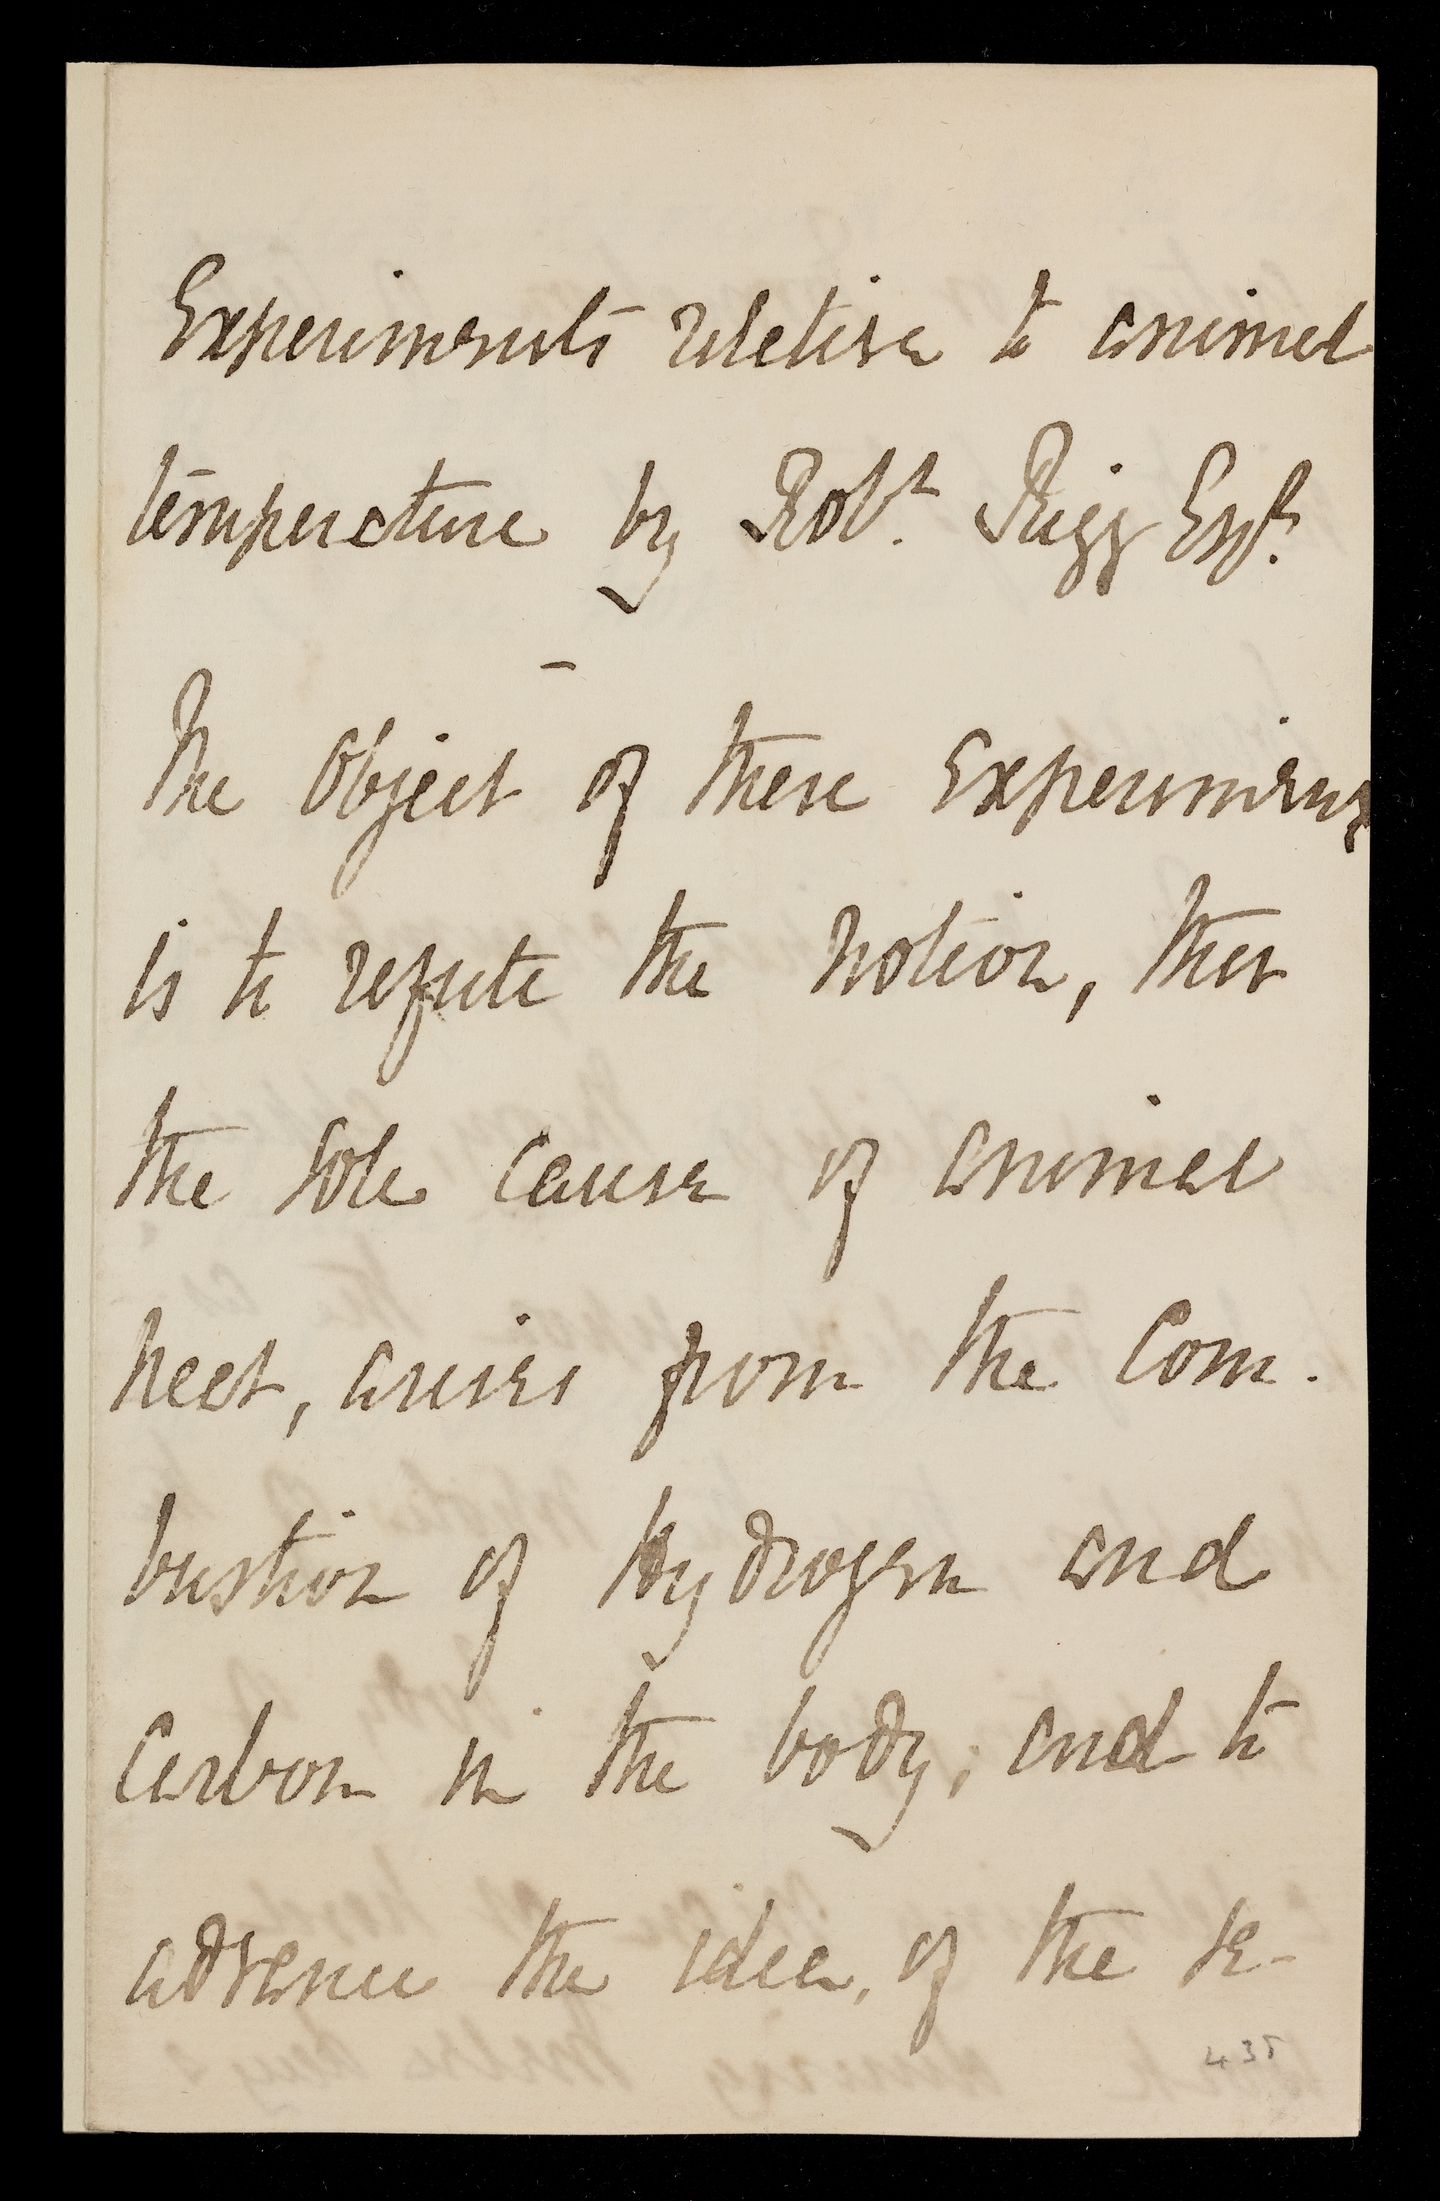 Experiments relative to animal
temperature by Robt. Rigg Esqr.
The Object of these Experiments
is to refute the Notion, that
the sole cause of animal
heat, arises from the Com-
bustion of Hydrogen and
Carbon in the body; and to
advance the idea, of the te-
435